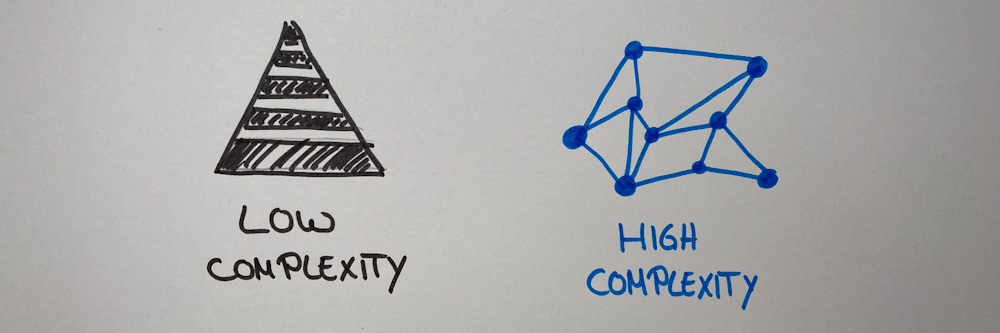 LOW
COMPLEXITY
HIGH
COMPLEXITY